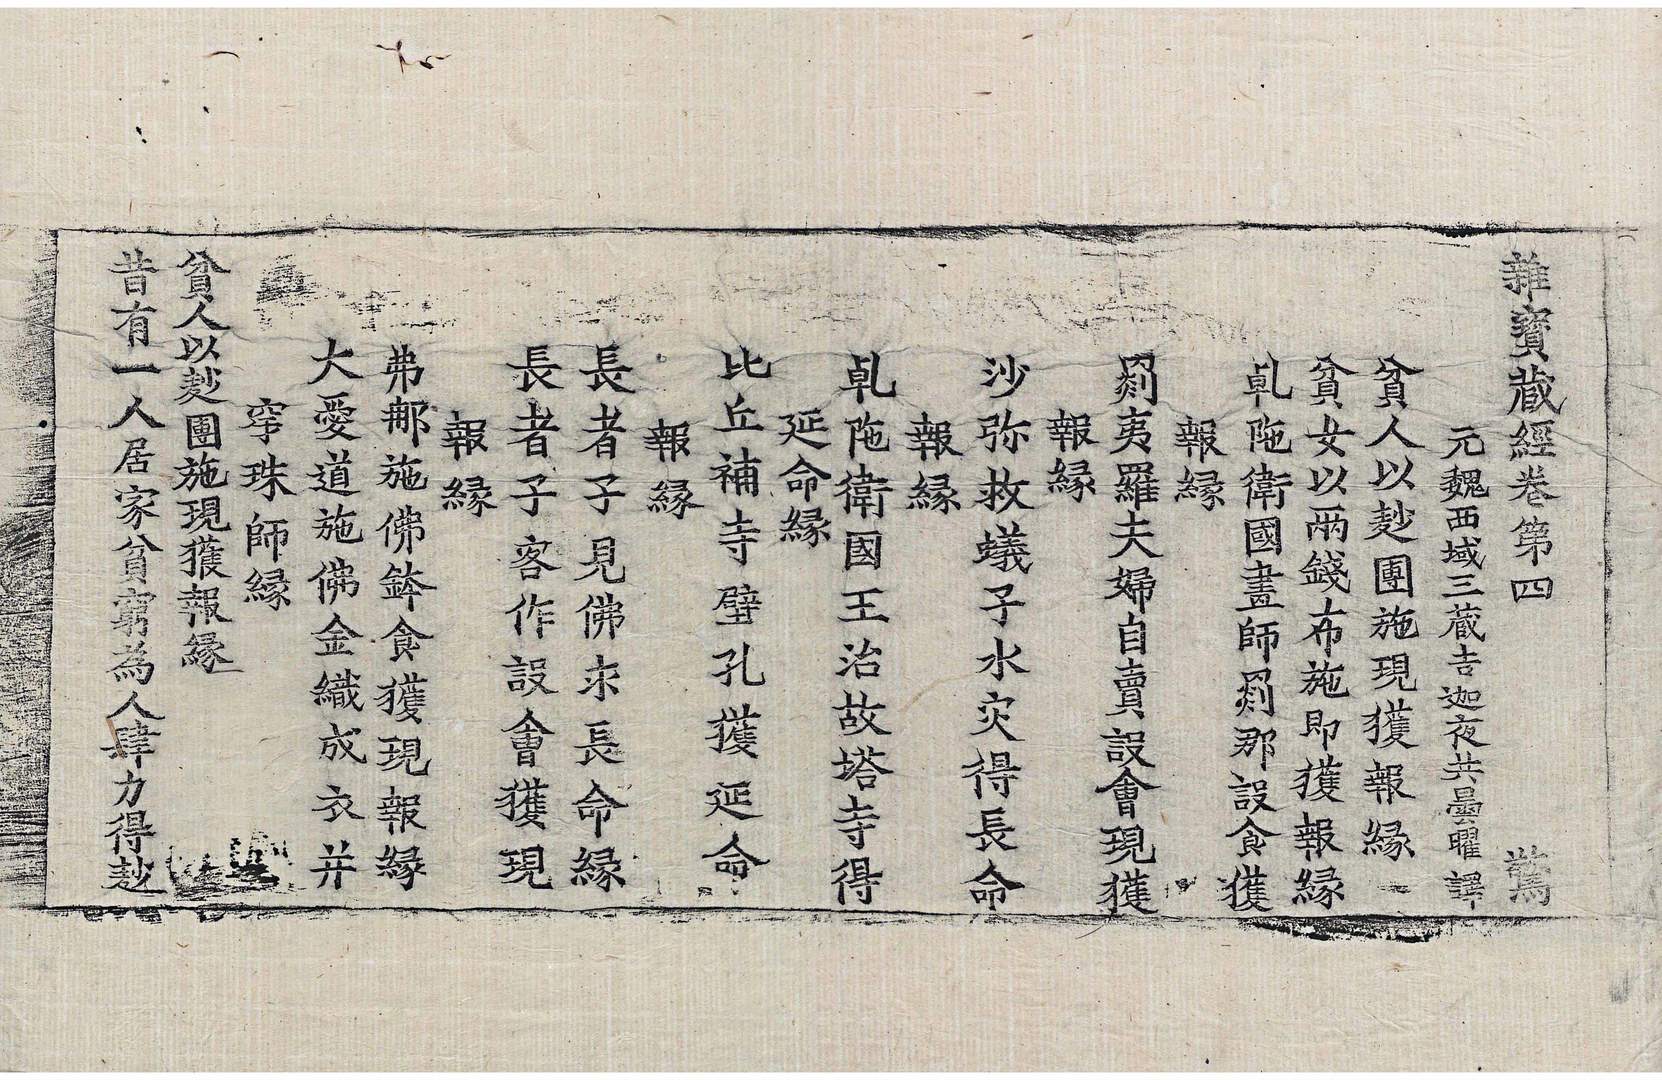 雜寶藏經卷第四 驚
元魏西域三藏吉迦夜共曇曜譯
貧人以麨團施現獲報緣
貧女以兩錢布施即獲報緣
乹陁衛國畫師罽那設食獲
報緣
罽夷羅夫婦自賣設會現獲
報緣
沙弥救蟻子水灾得長命
報緣
乹陁衛國王治故塔寺得
延命緣
比丘補寺壁孔獲延命
報緣
長者子見佛求長命緣
長者子客作設會獲現
報緣
弗𨚗施佛鉢食獲現報緣
大愛道施佛金織成衣并
穿珠師緣
貧人以麨團施現獲報緣
昔有一人居家貧窮為人肆力得麨